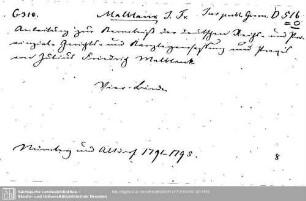 G310. Malblanc J. Fr. Jus publ. Germ. D 516
= 0
Anleitung zur Kenntniß der deutschen Reichs- und Pro-
vinzial- Gerichts- und Kanzleyverfassung und Praxis
von Julius Friedrich Malblank
Vier Bände
Nürnberg und Altdorf 1791-1795. 8
Sächsische Landesbibliothek -
Staats- und Universitätsbibliothek Dresden